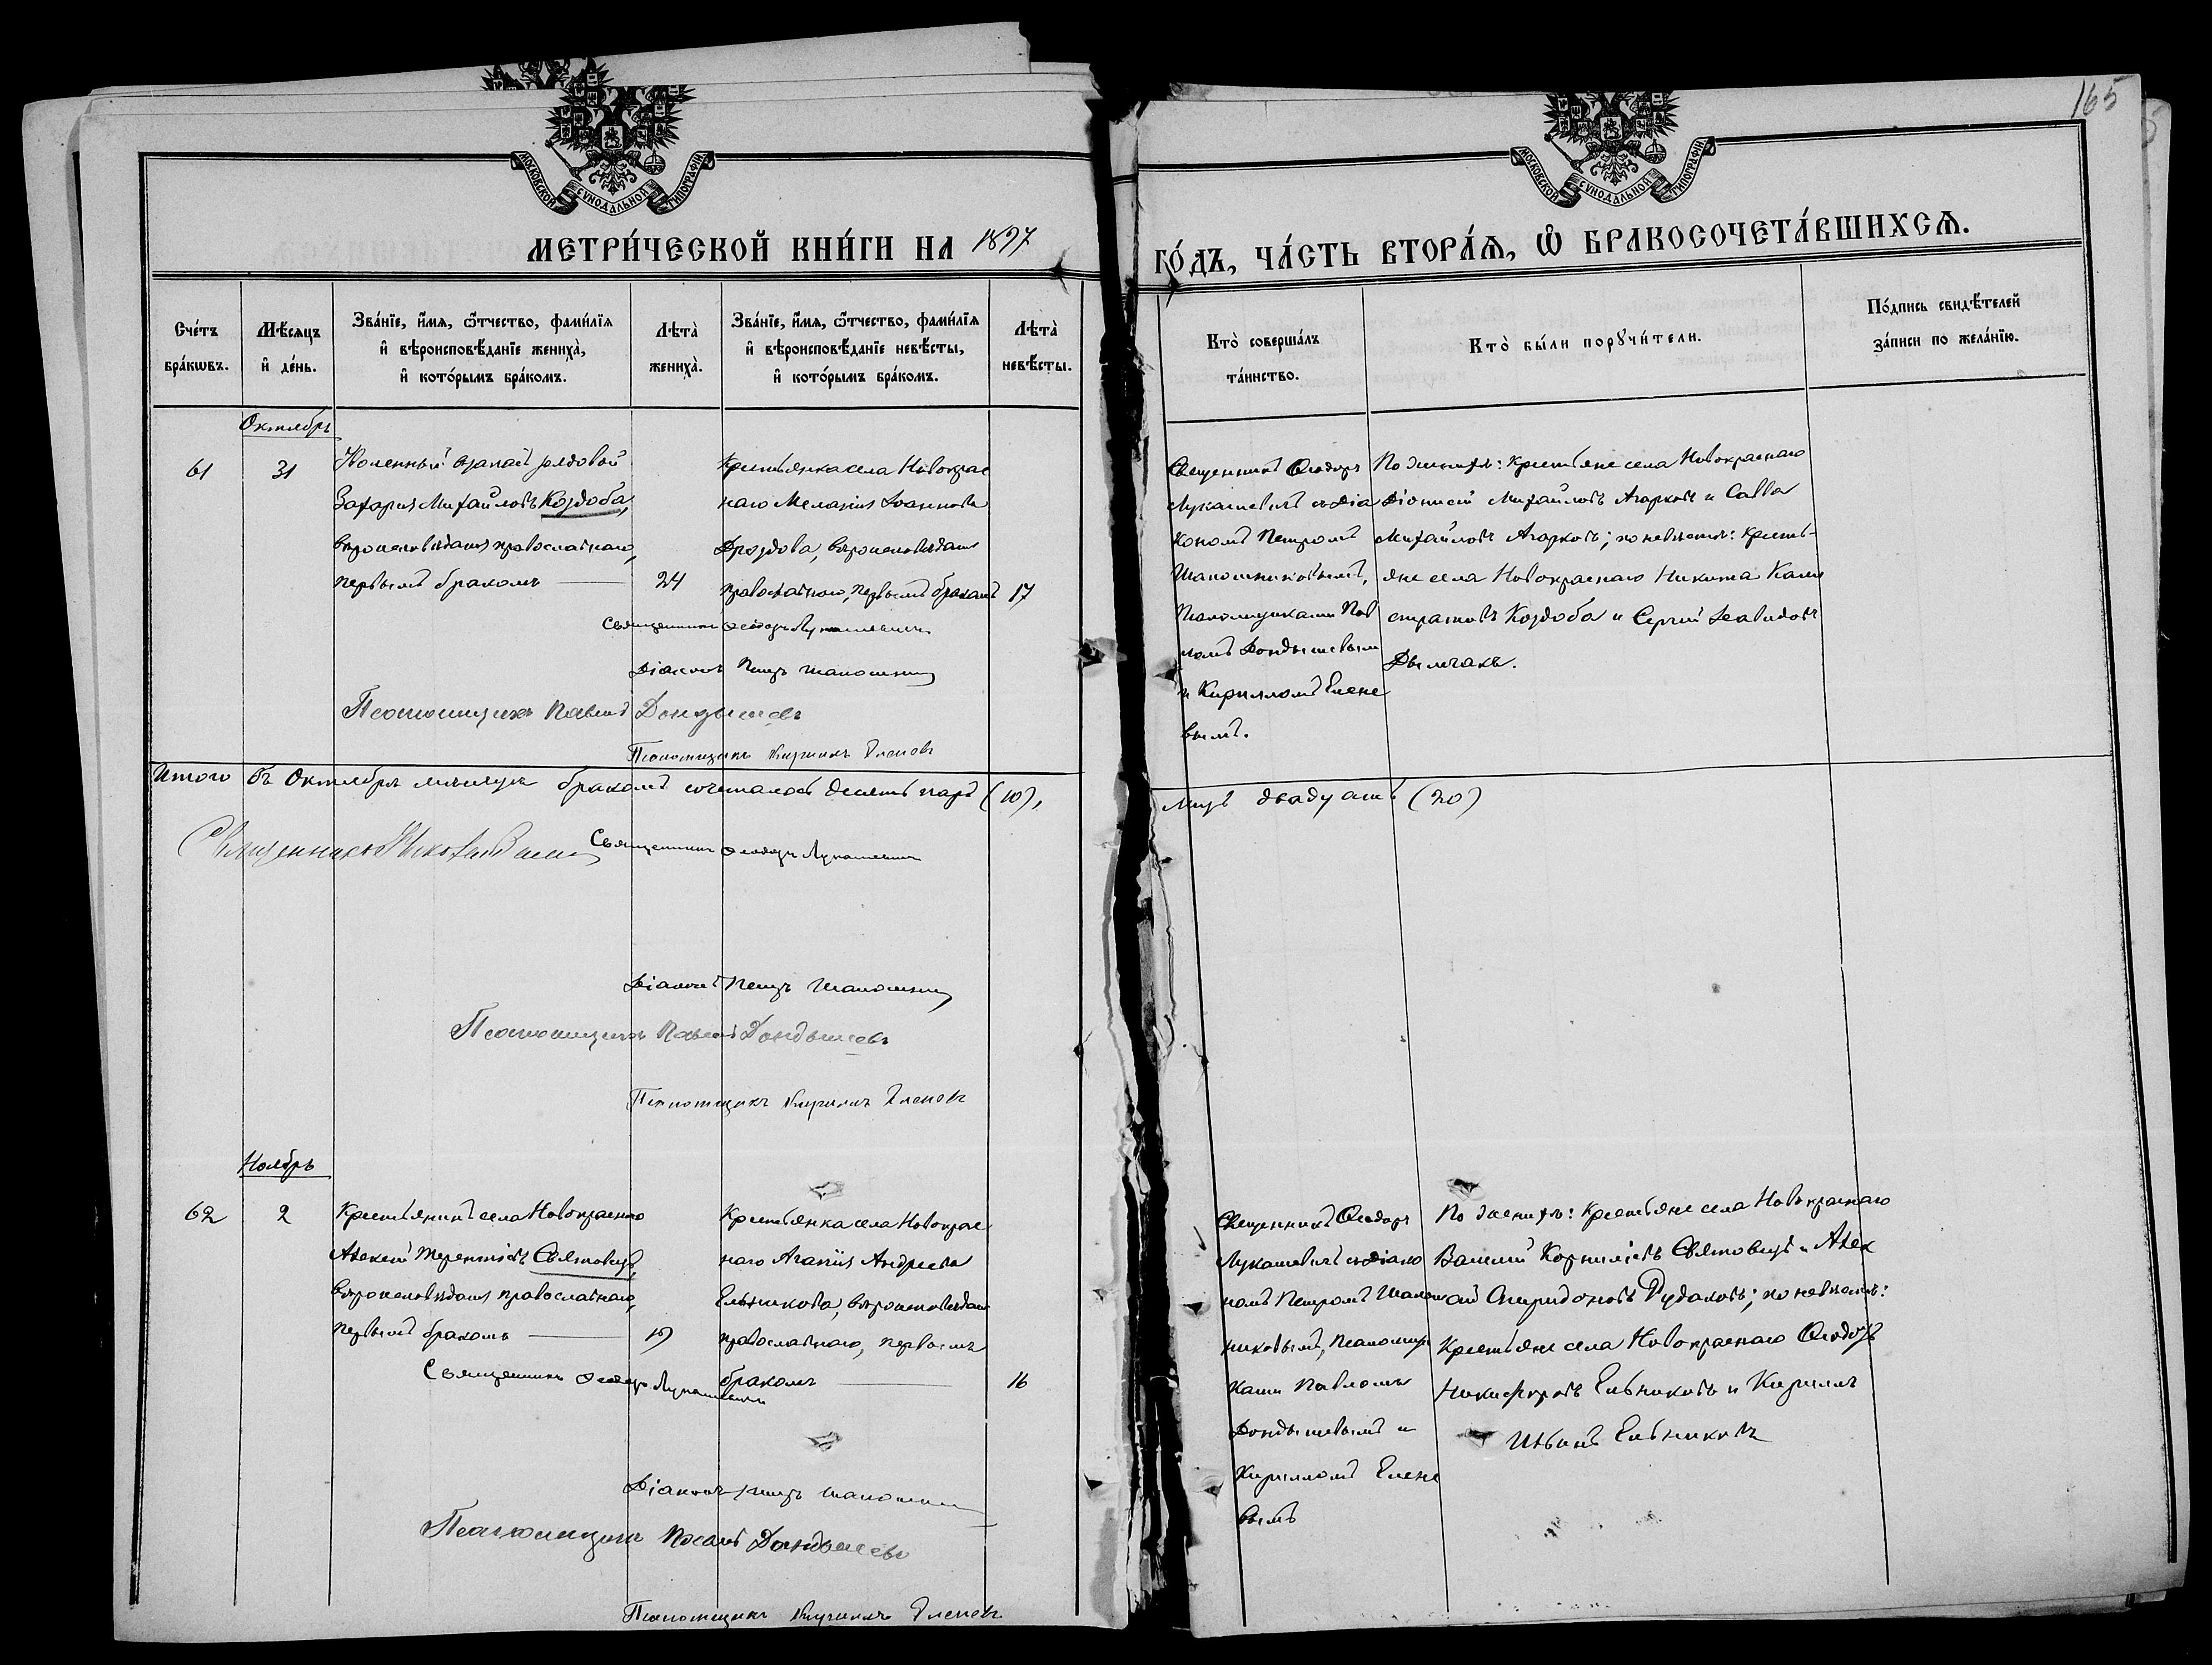 165
МОСКОВСКОЙ СѴНОДАЛЬНОЙ ТИПОГРАФІИ
МОСКОВСКОЙ СѴНОДАЛЬНОЙ ТИПОГРАФІИ
МЕТРИ́ЧЕСКОЙ КНИ́ГИ НА 1897
ГО́ДЪ, ЧА́СТЬ ВТОРА́Ѧ, Ѽ БРАКОСОЧЕТА́ВШИХСѦ.
Сче́тъ бра́кѡвъ.
Мѣ́сяцъ и҆ де́нь.
Зва́нїе, и҆́мѧ, ѻ҆́тчество, фами́лїѧ
и҆ вѣроисповѣ́данїе жениха̀,
и҆ кото́рымъ бра́комъ.
Лѣта̀ жениха̀.
Зва́нїе, и҆́мѧ, ѻ҆́тчество, фами́лїѧ
и҆ вѣроисповѣ́данїе невѣ́сты,
и҆ кото́рымъ бра́комъ.
Лѣта̀ невѣ́сты.
Кто̀ соверша́лъ та́инство.
Кто̀ бы́ли порꙋчи́тели.
По́дпись свидѣ́телей за́писи по жела́нїю.
Октябрь
61
31
запаса рядовой
Захарія Михайловъ Коздоба,
вѣроисповѣданія православнаго,
первымъ бракомъ
24
Крестьянка села Новокрас
наго Меланія Іоаннова
Дроздова, вѣроисповѣданія
православнаго, первымъ бракомъ
17
Священникъ Ѳеодоръ
Лукашевичъ съ діа
кономъ Петромъ
Шапошниковымъ,
Псаломщиками Пав
ломъ Дондышевымъ
и Кирилломъ Елене
вымъ.
По женихѣ: крестьяне села Новокраснаго
Діонисій Михайловъ Агарковъ и Савва
Михайловъ Агарковъ; по невѣстѣ: кресть-
яне села Новокраснаго Никита Кали
стратовъ Коздоба и Сергій
Священникъ Ѳеодоръ Лукашевичъ
Діаконъ Петръ Шапошник
Псаломщикъ Павелъ Дондышевъ
Псаломщикъ Кириллъ Еленевъ
Итого въ Октябрѣ мѣсяцѣ бракомъ сочеталось десять паръ (10),
лицъ двадцать (20)
Священникъ
Священникъ Ѳеодоръ Лукашевичъ
Діаконъ Петръ Шапошник
Псаломщикъ Павелъ Дондышевъ
Псаломщикъ Кириллъ Еленевъ
Ноябрь
62
2
Крестьянинъ села Новокраснаго
Алексій Терентіевъ Святовецъ,
вѣроисповѣданія православнаго,
первымъ бракомъ
19
Крестьянка села Новокрас
наго Агапія Андреева
Ельникова, вѣроисповѣданія
православнаго, первымъ
бракомъ
16
Священникъ Ѳеодоръ
Лукашевичъ съ діако
номъ Петромъ Шапош
никовымъ, Псаломщи
ками Павломъ
Дондышевымъ и
Кирилломъ Елене
вымъ
По женихѣ: крестьяне села Новокраснаго
Василій Корниліевъ Святовецъ и Алек
сій Спиридоновъ Рудаковъ; по невѣстѣ:
крестьяне села Новокраснаго Ѳеодоръ
Никифоровъ Ельниковъ и Кириллъ
Ивановъ Ельниковъ
Священникъ Ѳеодоръ Лукашевичъ
Діаконъ Петръ Шапошник
Псаломщикъ Павелъ Дондышевъ
Псаломщикъ Кириллъ Еленевъ